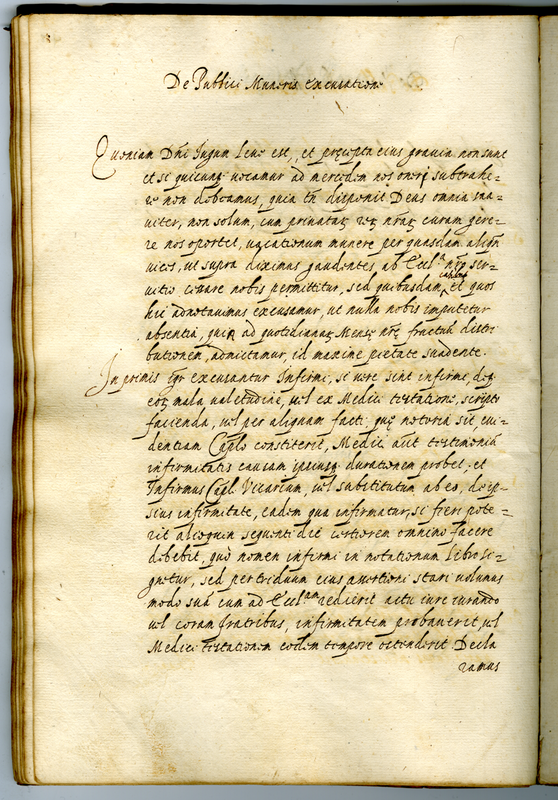 De Publici Muneris excusatione
Quoniam Dñi Iugum leue est, et pręcepta eius grauia non sunt
et si quicunq; uocamur ad mercedem nos oneri subtrahe=
re non debeamus, quia tñ disponit Deus omnia sua=
uiter, non solum, cum priuatarũ rerũ nrãrũ curam gere=
re nos oportet, uacationum munere per quasdam
uices, ut supra diximus gaudentes, ab Eccl.ª nrę ser=
uitio cessare nobis permittitur, sed quibusdam, et quos
causis
hic adnotauimus excusamur, ut nulla nobis imputetur
absentia, quin ad quotidianarũ Mensę nrę fructuũ distri
butionem, admittamur, id maxime pietate suadente.
In primis igr excusantur Infirmi, si uere sint infirmi, de q
eorũ mala ualetudine, uel ex Medici testatione, scripto
facienda, uel per aliquam facti, quę notoria sit, eui=
dentiam Caplo constiterit, Medici aũt testimoniũ
infirmitatis causam ipsiusq; durationem probet, et
Infirmus Capl. Vicarium, uel substitutum ab eo, de ip=
sius infirmitate, eadem qua infirmatur, si fieri pote=
rit alioquin sequenti die certiorem omnino facere
debebit, quò nomen infirmi in notationum libro si=
gnetur, sed per triduum eius assertioni stari uolumus
modo suã cum ad Eccl.am redierit actu iure iurando
uel coram fratribus, infirmitatem probauerit, uel
Medici testationem eodem tempore ostenderit. Decla
ramus